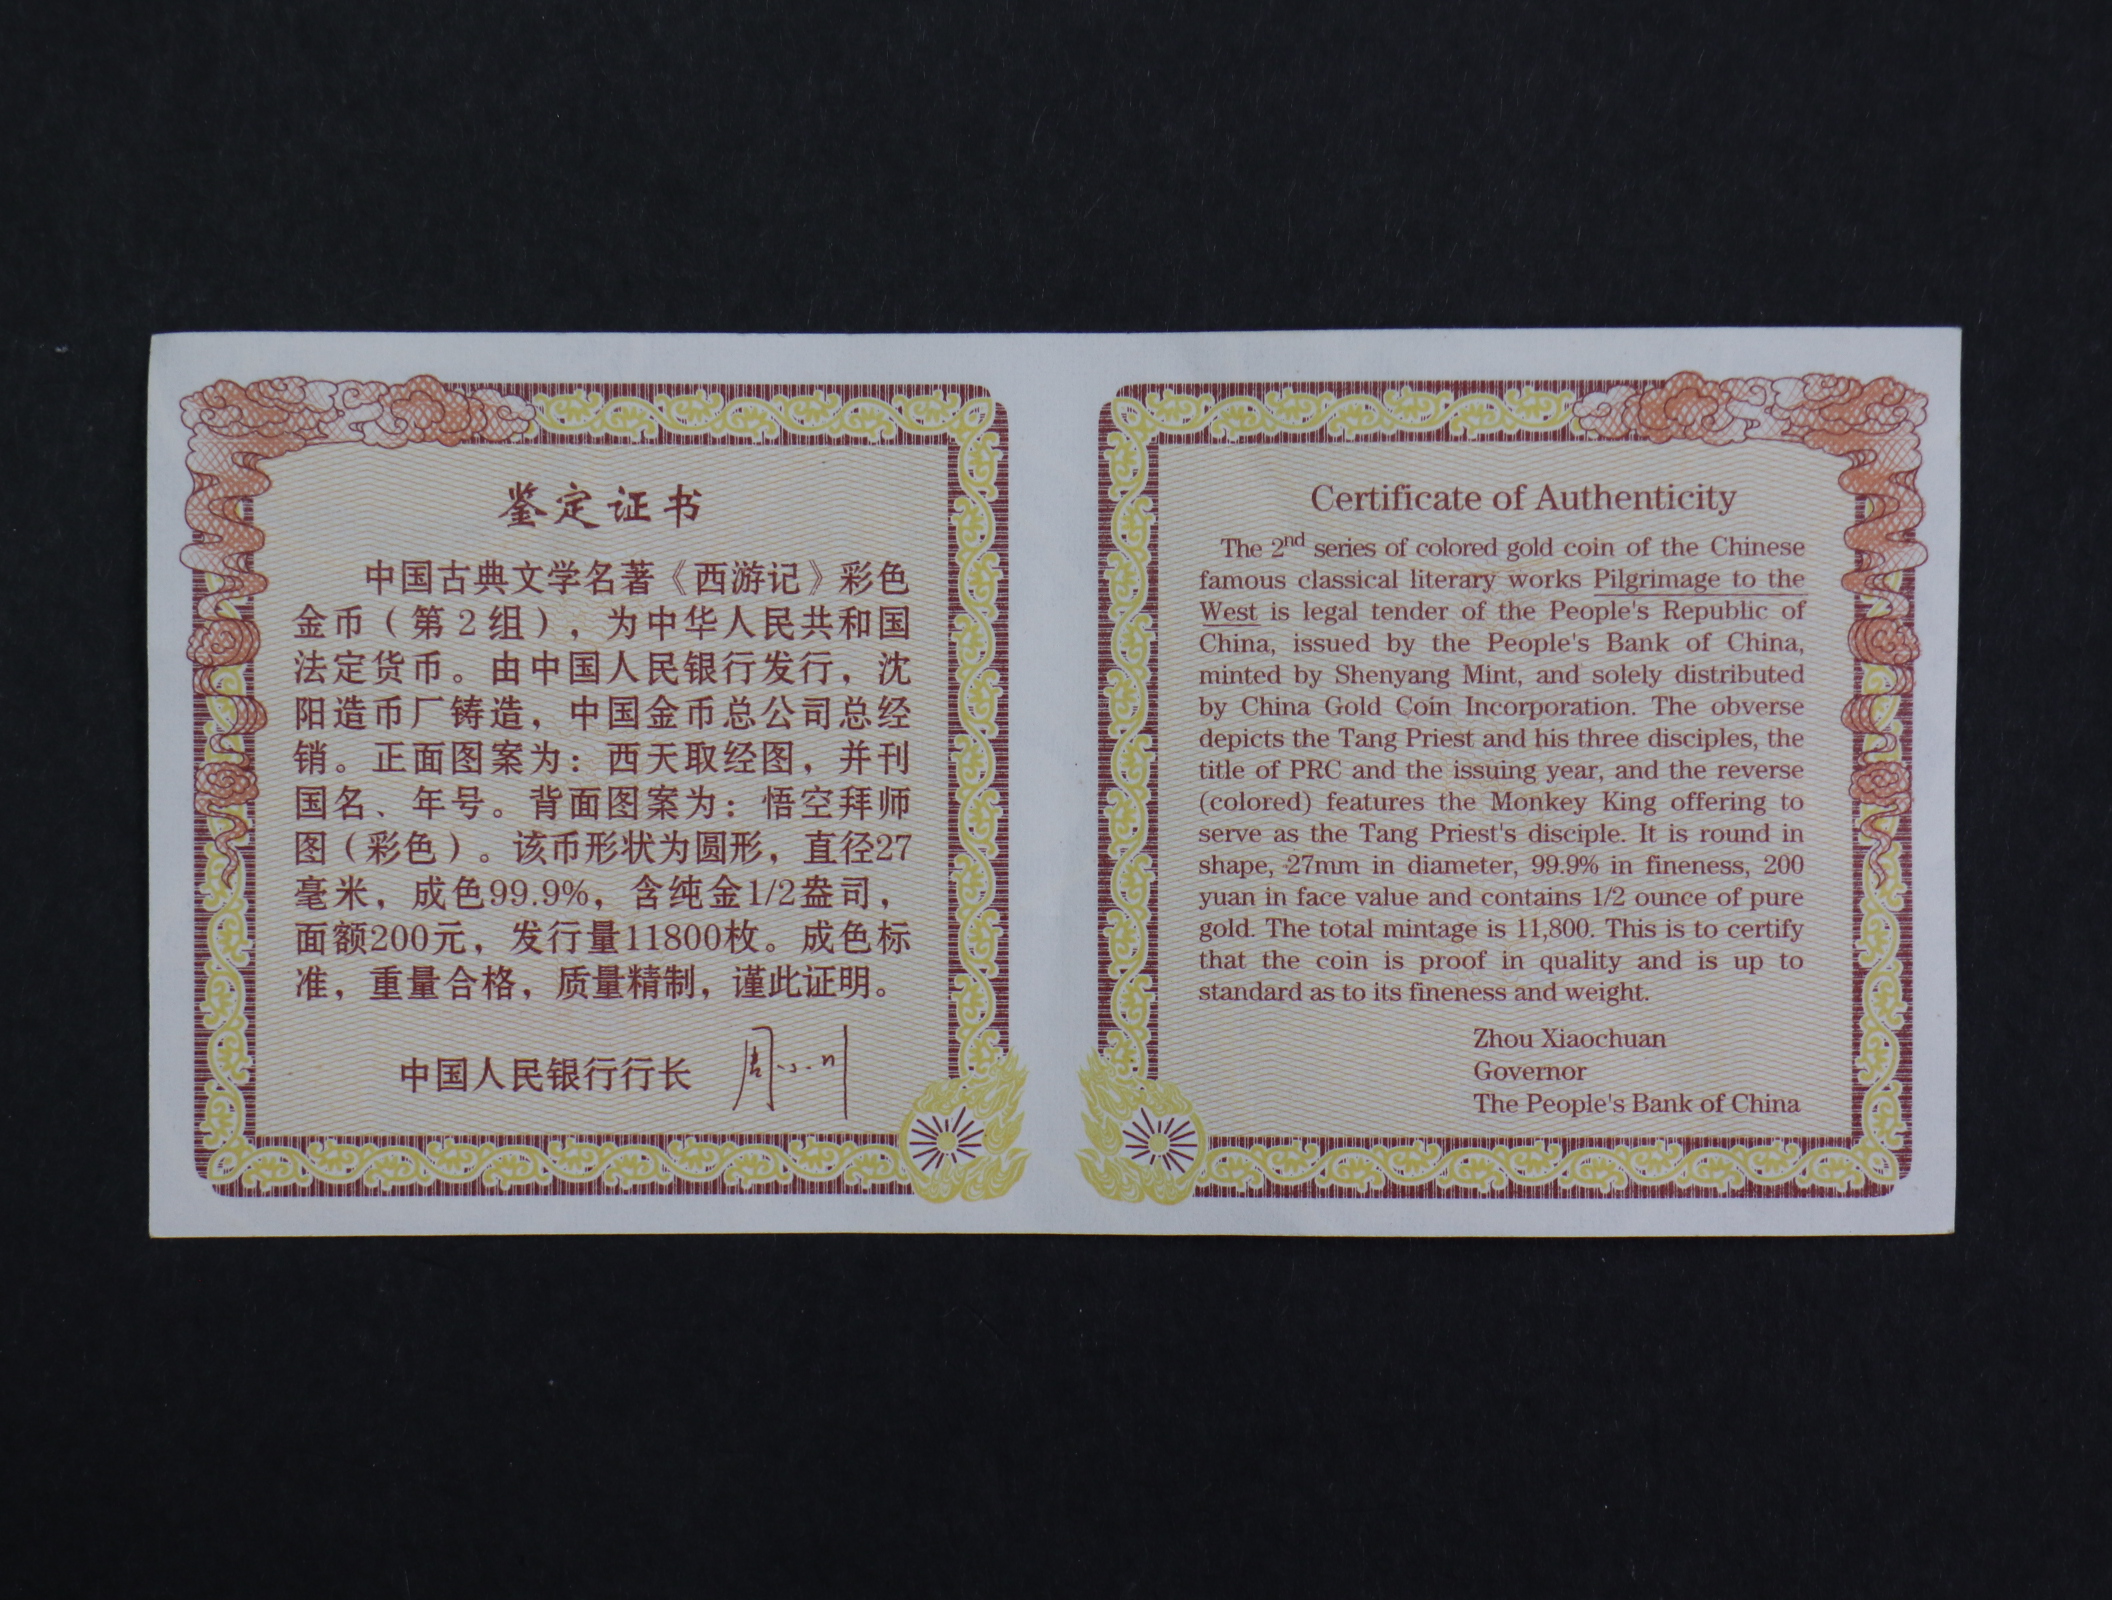 鉴定证书
中国古典文学名著《西游记》彩色
金币（第2组），为中华人民共和国
法定货币。由中国人民银行发行，沈
阳造币厂铸造，中国金币总公司总经
销。正面图案为：西天取经图，并刊
国名、年号。背面图案为：悟空拜师
图（彩色）。该币形状为圆形，直径27
毫米，成色99.9%，含纯金1/2盎司，
面额200元，发行量11800枚。成色标
准，重量合格，质量精制，谨此证明。
中国人民银行行长 周小川
Certificate of Authenticity
The 2nd series of colored gold coin of the Chinese
famous classical literary works Pilgrimage to the
West is legal tender of the People's Republic of
China, issued by the People's Bank of China,
minted by Shenyang Mint, and solely distributed
by China Gold Coin Incorporation. The obverse
depicts the Tang Priest and his three disciples, the
title of PRC and the issuing year, and the reverse
(colored) features the Monkey King offering to
serve as the Tang Priest's disciple. It is round in
shape, 27mm in diameter, 99.9% in fineness, 200
yuan in face value and contains 1/2 ounce of pure
gold. The total mintage is 11,800. This is to certify
that the coin is proof in quality and is up to
standard as to its fineness and weight.
Zhou Xiaochuan
Governor
The People's Bank of China